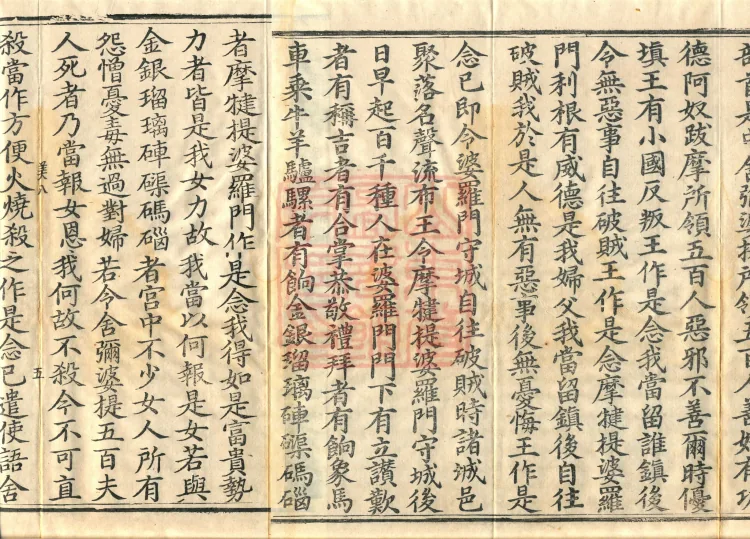 德阿奴跋摩所領五百人惡邪不善爾時優
填王有小國反叛王作是念我當留誰鎮後
令無惡事自往破賊王作是念摩犍提婆羅
門利根有威德是我婦父我當留鎮後自往
破賊我於是人無有惡事後無憂悔王作是
念已即令婆羅門守城自往破賊時諸城邑
聚落名聲流布王令摩犍提婆羅門守城後
日早起百千種人在婆羅門門下有立讃歎
者有稱吉者有合掌恭敬禮拜者有餉象馬
車乘牛羊驢騾者有餉金銀瑠璃硨磲碼碯
者摩犍提婆羅門作是念我得如是富貴勢
力者皆是我女力故我當以何報是女若與
金銀瑠璃硨磲碼碯者宮中不少女人所有
怨憎憂毒無過對婦若令舍彌婆提五百夫
人死者乃當報女恩我何故不殺今不可直
五
殺當作方便火燒殺之作是念已遣使語舍